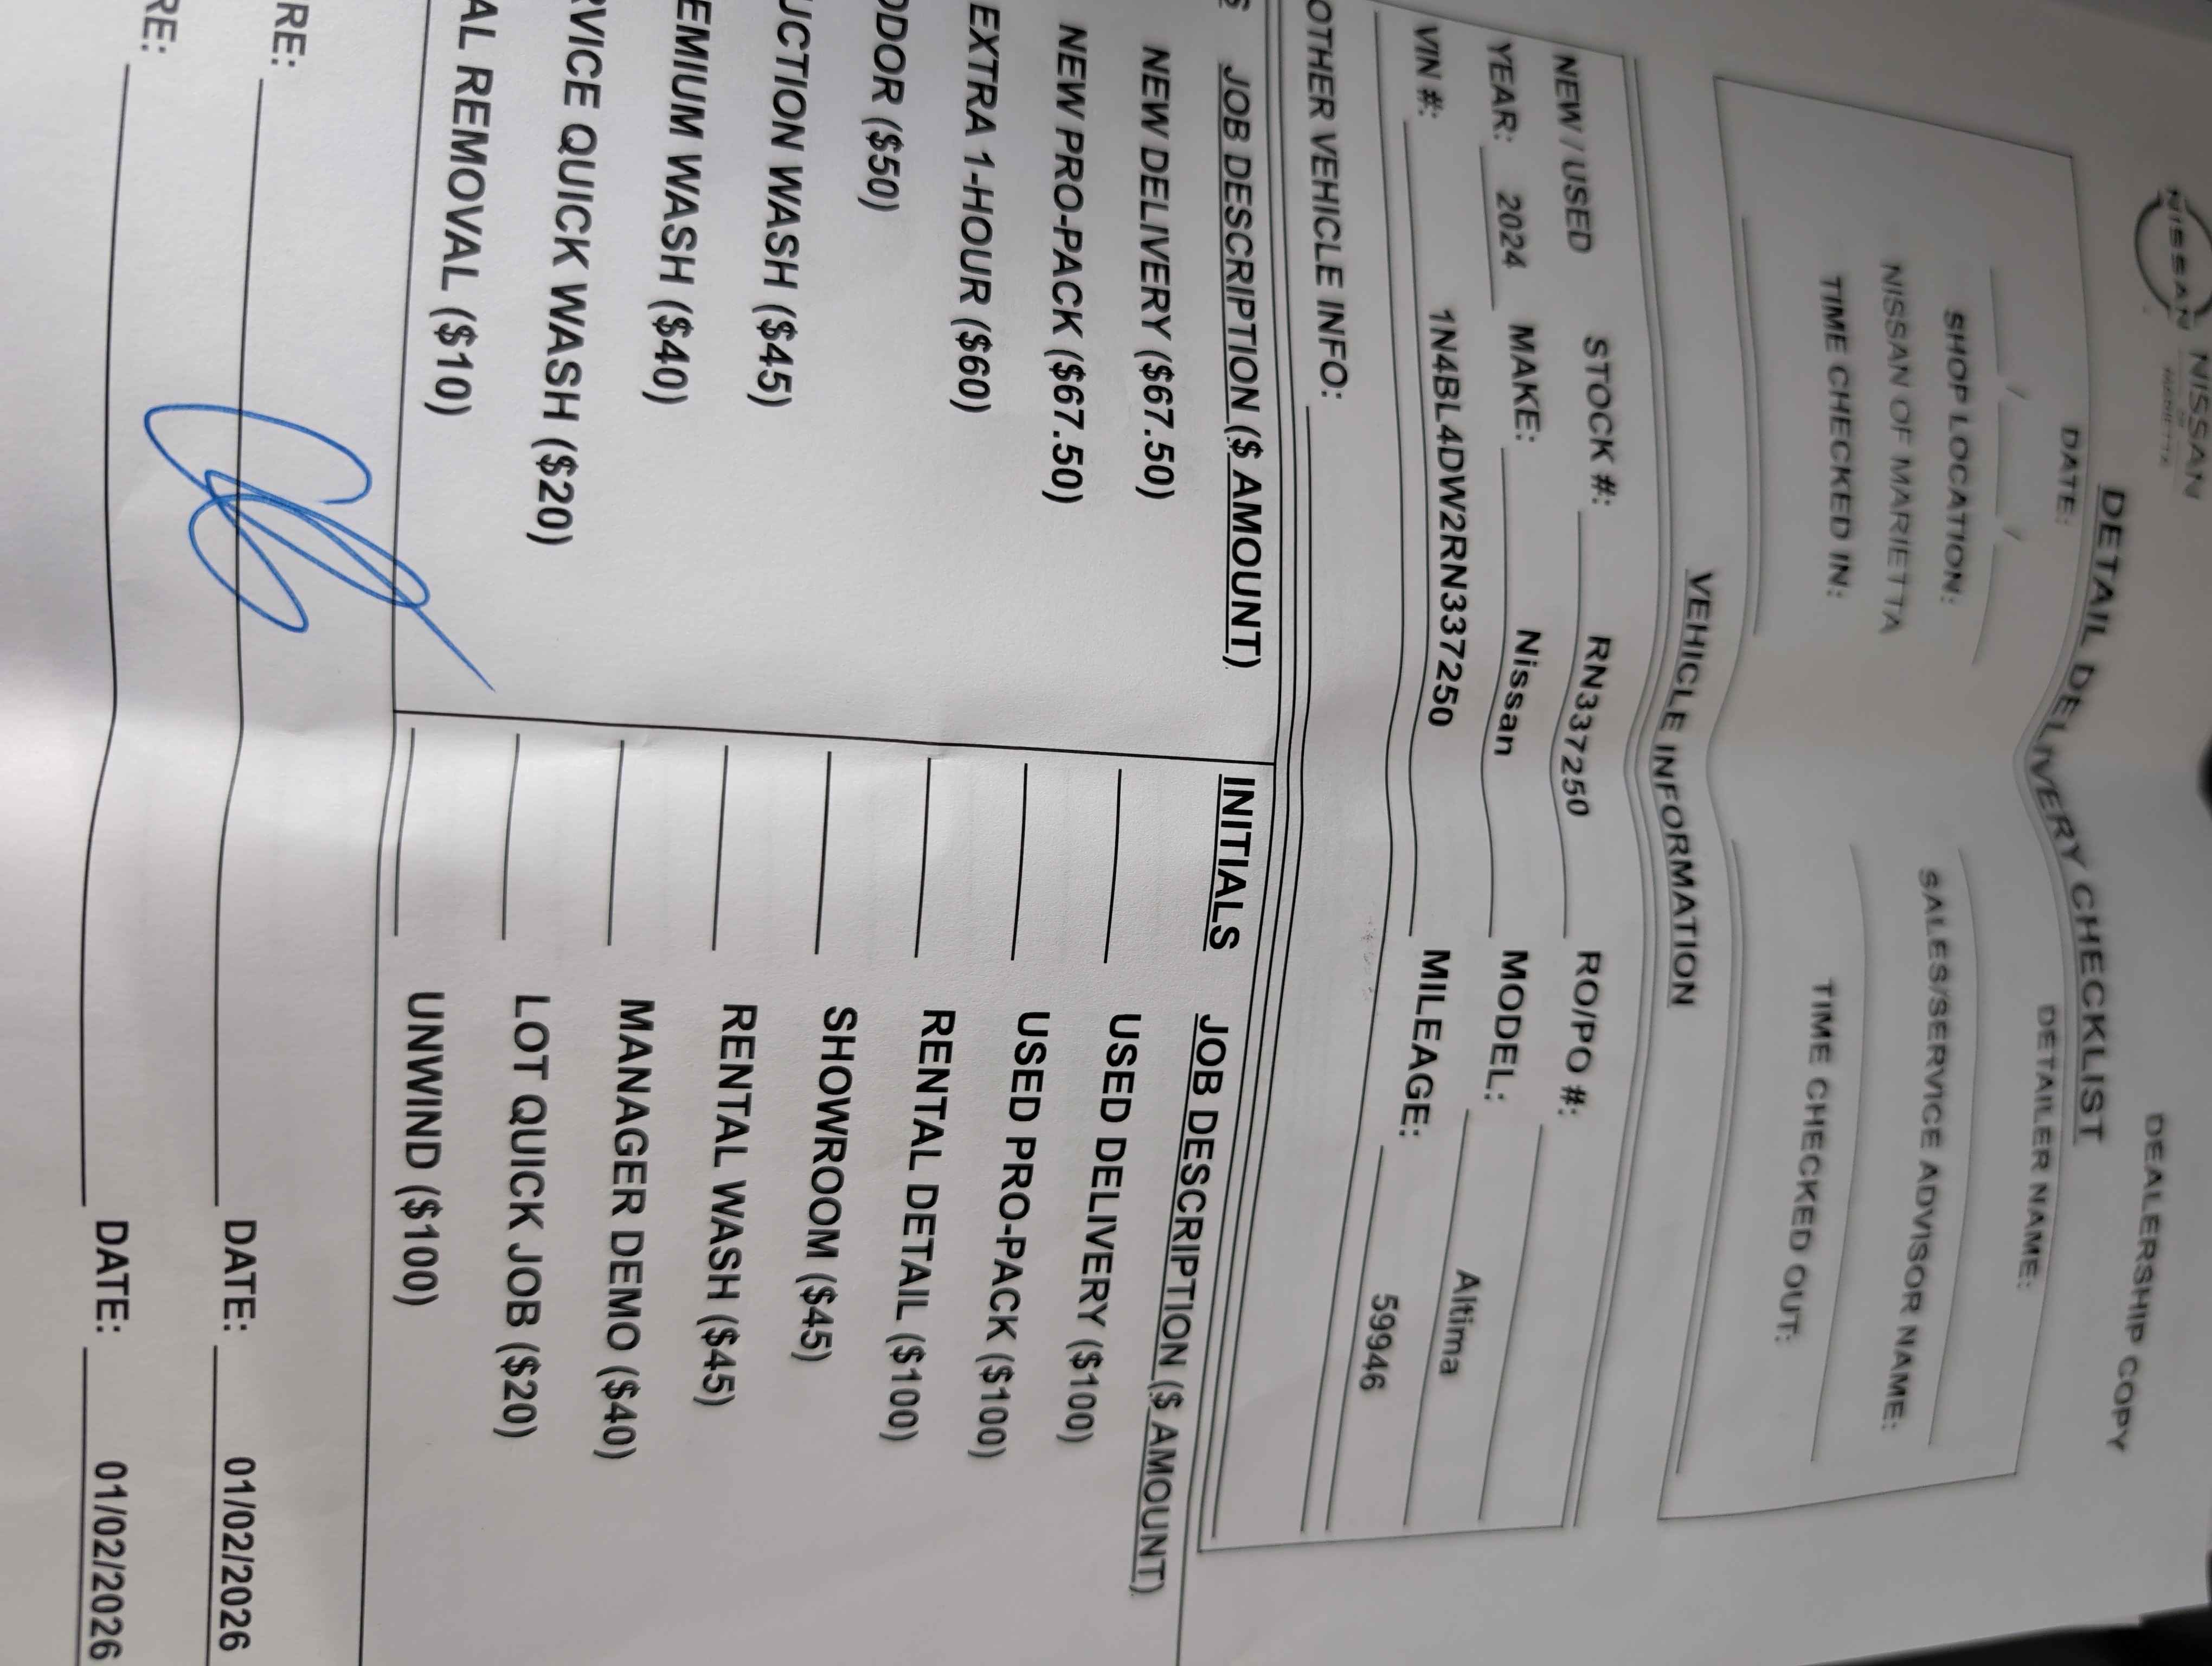 NISSAN
NISSAN
OF
MARIETTA
DEALERSHIP COPY
DETAIL DELIVERY CHECKLIST
DATE: DETAILER NAME:
/ /
SHOP LOCATION: SALES/SERVICE ADVISOR NAME:
NISSAN OF MARIETTA
TIME CHECKED IN: TIME CHECKED OUT:
VEHICLE INFORMATION
NEW / USED STOCK #: RN337250 RO/PO #:
YEAR: 2024 MAKE: Nissan MODEL: Altima
VIN #: 1N4BL4DW2RN337250 MILEAGE: 59946
OTHER VEHICLE INFO:
S JOB DESCRIPTION ($ AMOUNT) INITIALS JOB DESCRIPTION ($ AMOUNT)
NEW DELIVERY ($67.50) USED DELIVERY ($100)
NEW PRO-PACK ($67.50) USED PRO-PACK ($100)
EXTRA 1-HOUR ($60) RENTAL DETAIL ($100)
ODOR ($50) SHOWROOM ($45)
UCTION WASH ($45) RENTAL WASH ($45)
EMIUM WASH ($40) MANAGER DEMO ($40)
RVICE QUICK WASH ($20) LOT QUICK JOB ($20)
AL REMOVAL ($10) UNWIND ($100)
RE: DATE: 01/02/2026
RE: DATE: 01/02/2026